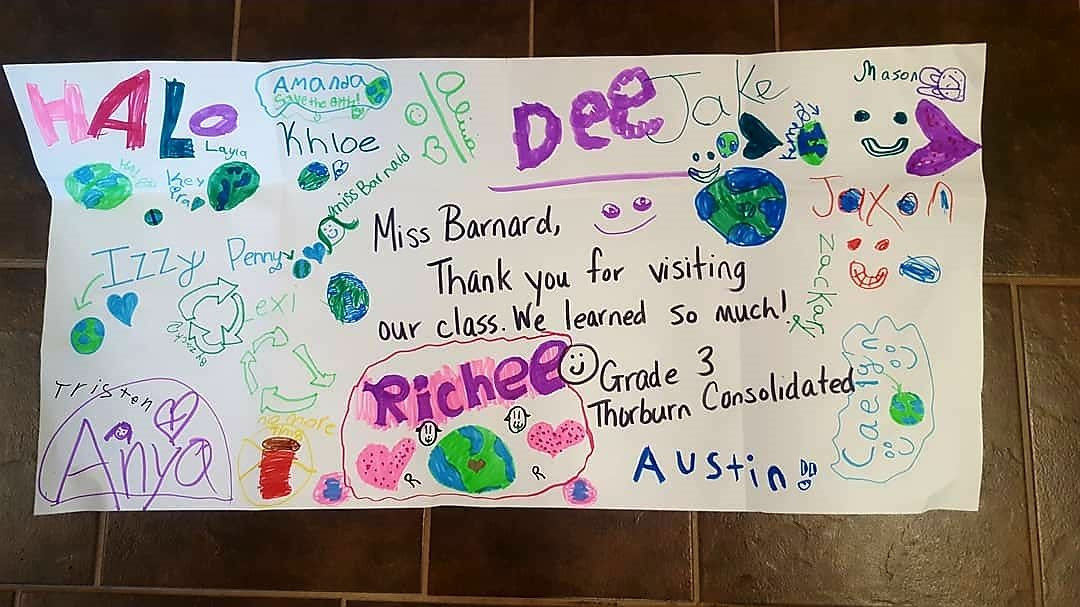 HALO
Layla
Amanda
Save the earth!
Khloe
Olivia
Dee
Jake
Mason
miss Barnald
Jaxon
Izzy
Penny
Miss Barnard,
Thank you for visiting
our class. We learned so much!
Zackary
Lexi
Richee
Grade 3
Thorburn Consolidated
Caelyn
Tristen
Anya
no more
this
R
R
Austin!!